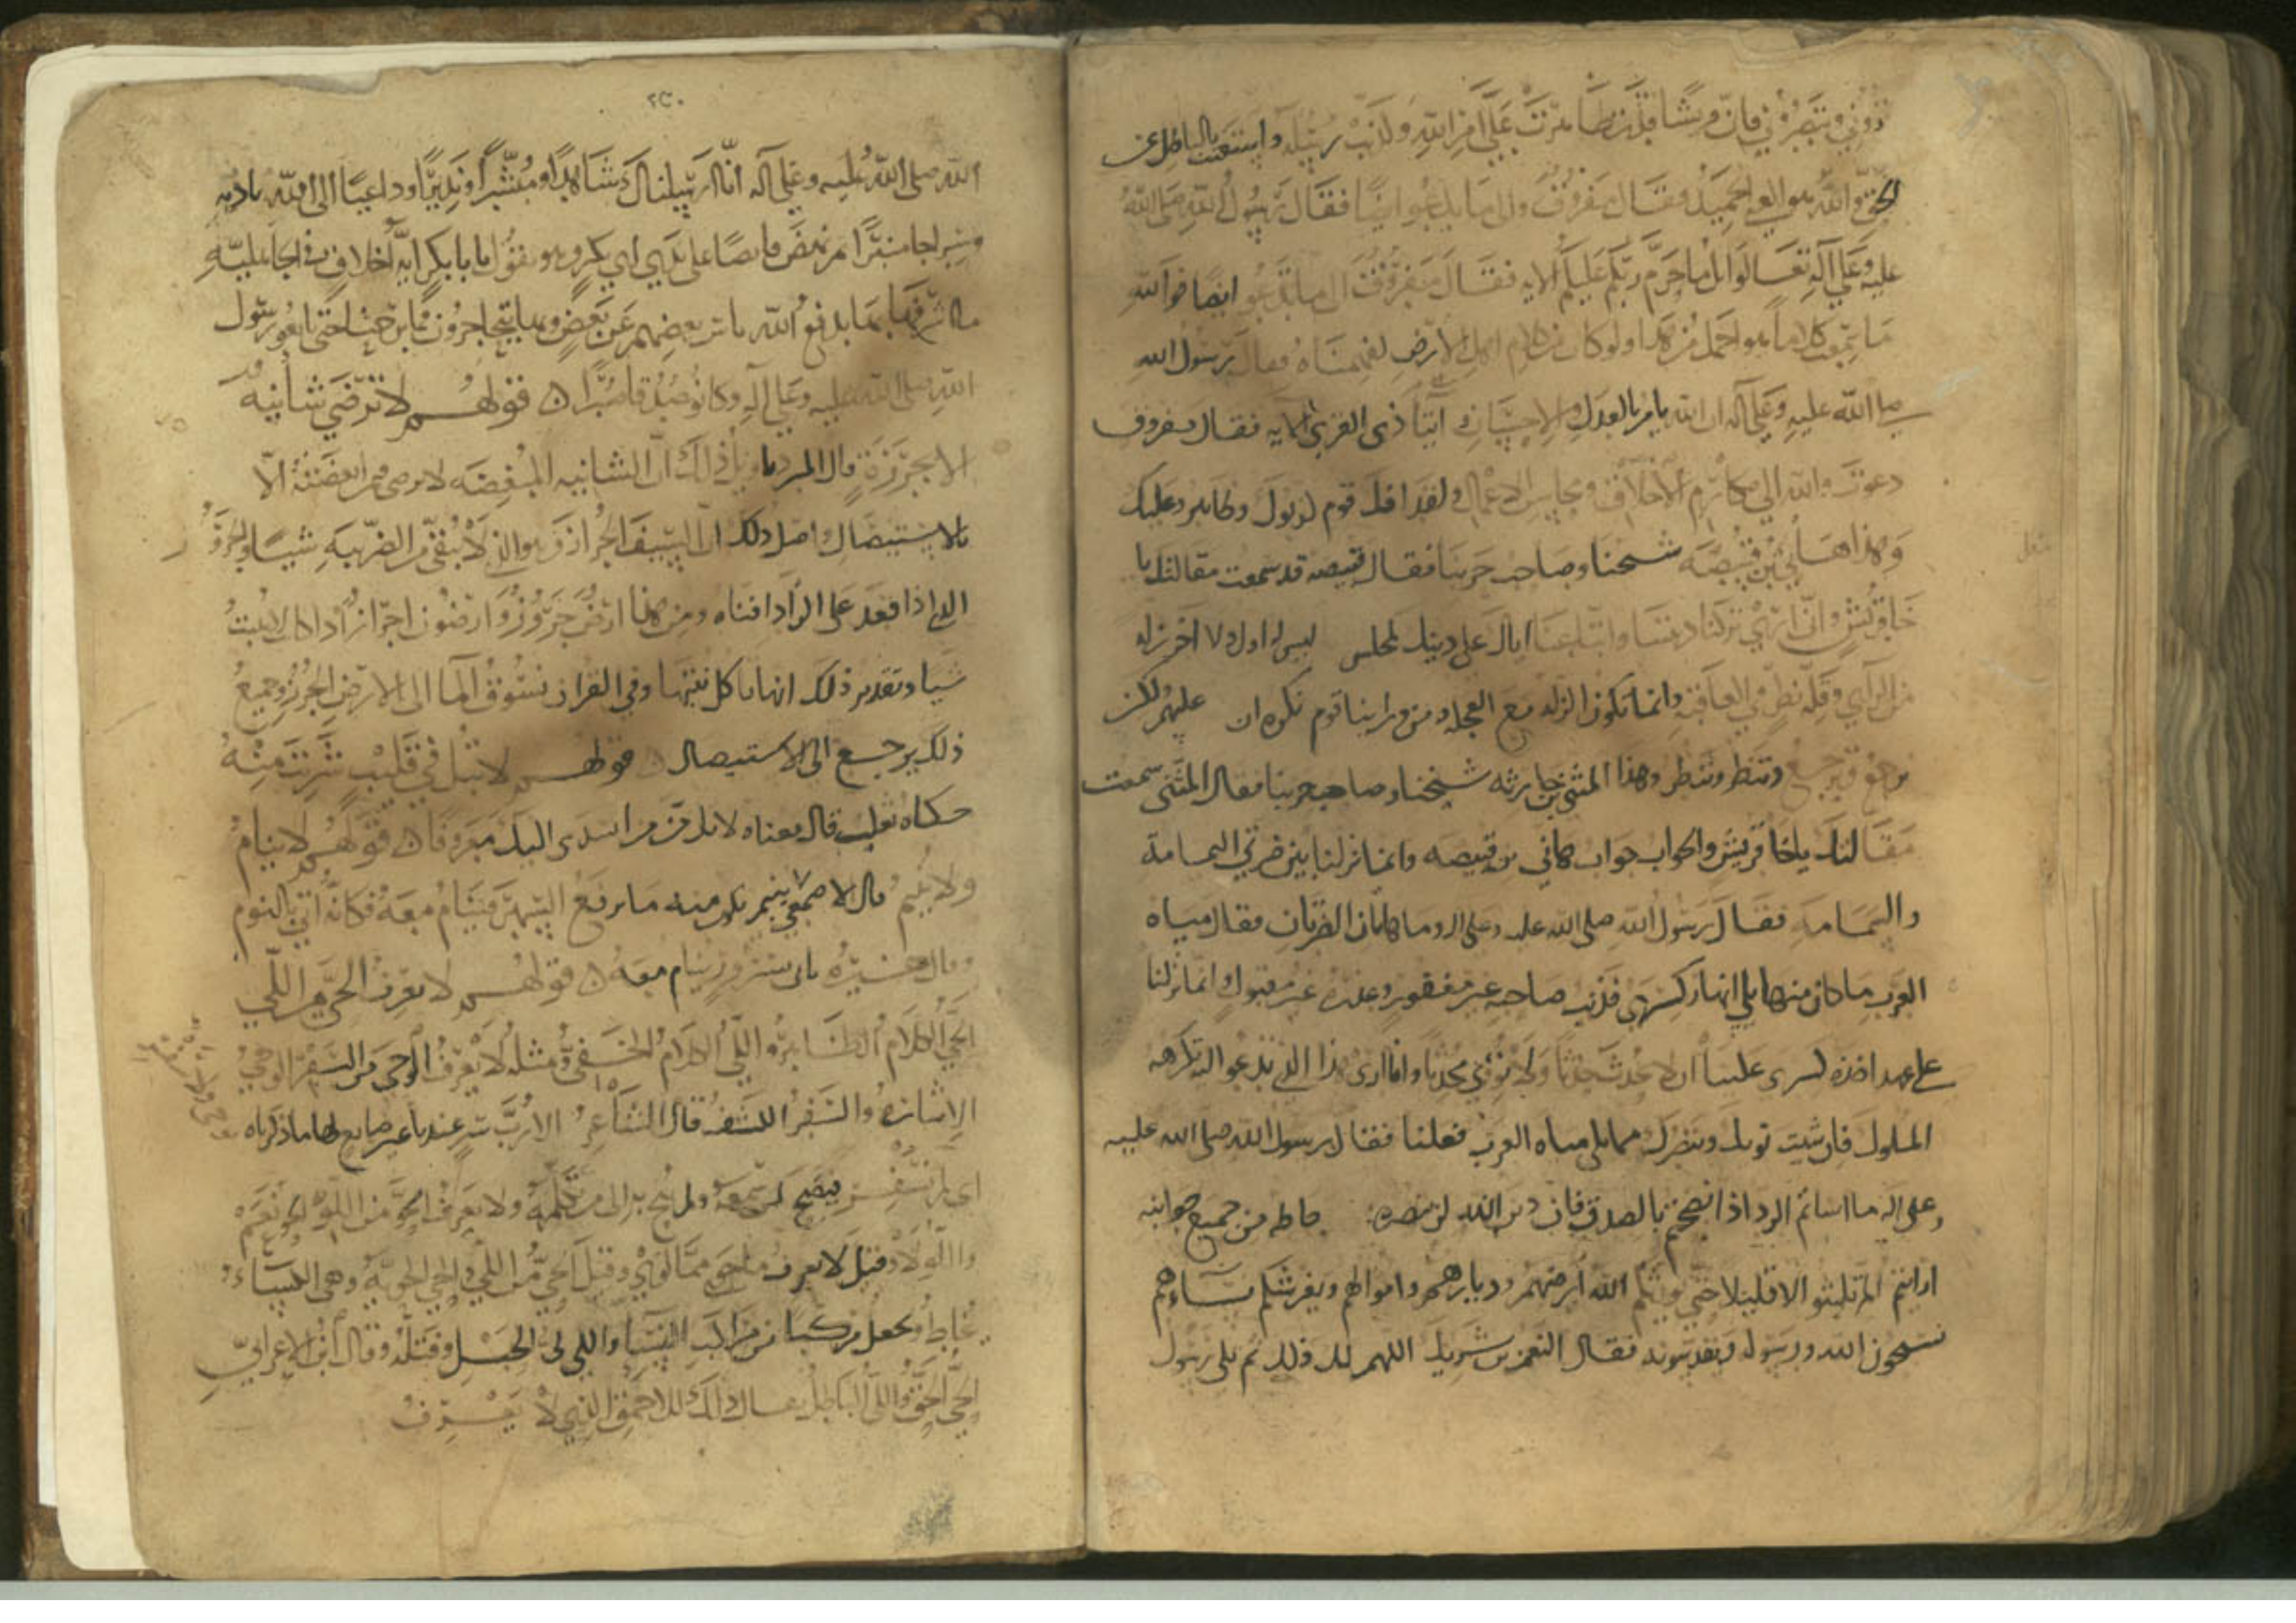 ذوني وتنصروني فان قريشا قد تظاهرت على امر الله وكذبت رسله واستغنت بالباطل عن
الحق والله هو الغني الحميد فقال مفروق والى ما تدعو ايضا فقال رسول الله صلى الله
عليه وعلى آله تعالوا اتل ما حرم ربكم عليكم الايه فقال مفروق الى ما تدعو ايضا فوالله
ما سمعت كلاما هو اجمل من هذا ولو كان من كلام اهل الارض لفهمناه فقال رسول الله
صلى الله عليه وعلى آله ان الله يامر بالعدل والاحسان وايتآ ذى القربى الآيه فقال مفروق
دعوت والله الى مكارم الاخلاق ومحاسن الاعمال ولقد افك قوم كذبوك وظاهروا عليك
وهذا هانى بن قبيصة شيخنا وصاحب حربنا فقال قبيصه قد سمعت مقالتك يا
اخا قريش وانى ارى تركنا ديننا واتباعنا اياك على دينك لمجلس ليس له اول ولا اخر زله
من الرأي وقلة نظر في العاقبة وانما تكون الزله مع العجله ومن ورائنا قوم نكره ان عليهم ولكن
نرجع وترجع وننظر وتنظر وهذا المثنى بن حارثه شيخنا وصاحب حربنا فقال المثنى سمعت
مقالتك يا اخا قريش والجواب جواب هاني بن قبيصه وانما نزلنا بين ضرتي اليمامة
والسمامة فقال رسول الله صلى الله عليه وعلى اله وما هاتان الضرتان فقال مياه
العرب ما كان منها يلي انهار كسرى فذنب صاحبه غير مغفور وعذره غير مقبول وانما نزلنا
على عهد اخذه كسرى علينا ان لا نحدث حدثا ولا نؤوي محدثا وانا ارى هذا الذي تدعو اليه تكرهه
الملوك فان شيت نويك وننصرك مما يلي مياه العرب فعلنا فقال رسول الله صلى الله عليه
وعلى اله ما اساتم الرد اذ افصحتم بالصدق فان دين الله لن ينصره حاطه من جميع جوانبه
ارايتم ان لم تلبثوا الا قليلا حتى يورثكم الله ارضهم وديارهم واموالهم ويفرشكم نساءهم
تسبحون الله ورسوله وتقدسونه فقال النعمن بن شريك اللهم لك ذلك ثم تلى رسول
٢٤٠
الله صلى الله عليه وعلى آله انا ارسلناك شاهدا ومبشرا ونذيرا وداعيا الى الله باذنه
وسراجا منيرا ثم نهض قابضا على يدي ابي بكر وهو يقول يا با بكر اية اخلاق في الجاهلية
ما اشرفها بها يدفع الله باس بعضهم عن بعض وبها يتحاجزون فما برحنا حتى بايعوا رسول
الله صلى الله عليه وعلى آله وكانوا صدقا صبرا قولهم لا ترضى شانية
الا بجرزة قال المبرد تاويل ذلك ان الشانيه المبغضه لا ترضى ممن ابغضته الا
بالاستيصال اصل ذلك ان السيف الجراز هو الذي لا يبقى من الضريبة شيئا والجروز
الذي اذا قعد على الزاد افناه ومن هذا ارض جرز وارضون اجراز اذا كان لا ينبت
شيا وتقدير ذلك انها تاكل نبتها وفي القران نسوق المآ الى الارض الجرز وجميع
ذلك يرجع الى الاستيصال قولهم لا تبل في قليب شربت منه
حكاه ثعلب قال معناه لا تذمن من اسدى اليك معروفا قولهم لا ينام
ولا ينيم قال الاصمعي ينيم يكون منه ما يرفع السهر فينام معه فكانه اتى بالنوم
وقال غيره ياتي بسرور ينام معه قولهم لا يعرف الحي من اللي
الحي الكلام الظاهر واللي الكلام الخفي ومثله لا يعرف الوحي من السفر الوحي
الاشاره والسفر الكشف قال الشاعر الا رب سر عندنا غير ضايع لها ما ذكرناه
اى لم نسفر فيضيح من سمعه ولم يحتج الى من تكلمه ولا يعرف الحو من اللو الحو نعم
واللو لا وقيل لا يعرف ما حوى مما لوى وقيل الحي من اللي والحي الحوية وهي الكساء
يحاط ويجعل مركبا من مراكب النسآ واللي لي الحبل وفتله وقال ابن الاعرابي
الحي الحق واللي الباطل يقال ذلك للاحمق الذي لا يعرف